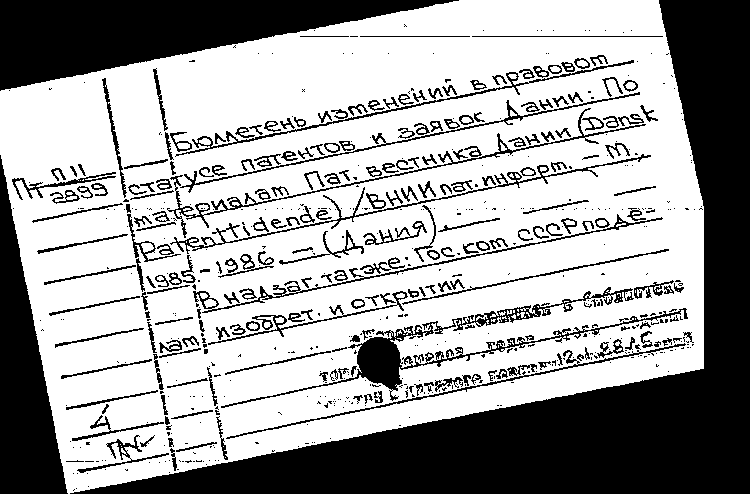 Бюллетень изменений в правовом
Пт П11 статусе патентов и заявок Дании: По
2899 материалам Пат. вестника Дании (Dansk
Patenttidende) / ВНИИ пат. информ. – М.,
1985.-1986. — (Дания). — — —
В надзаг. также: Гос. ком. СССР по де-
лам изобрет. и открытий.
в библиотеке
номеров, годов этого издания
4